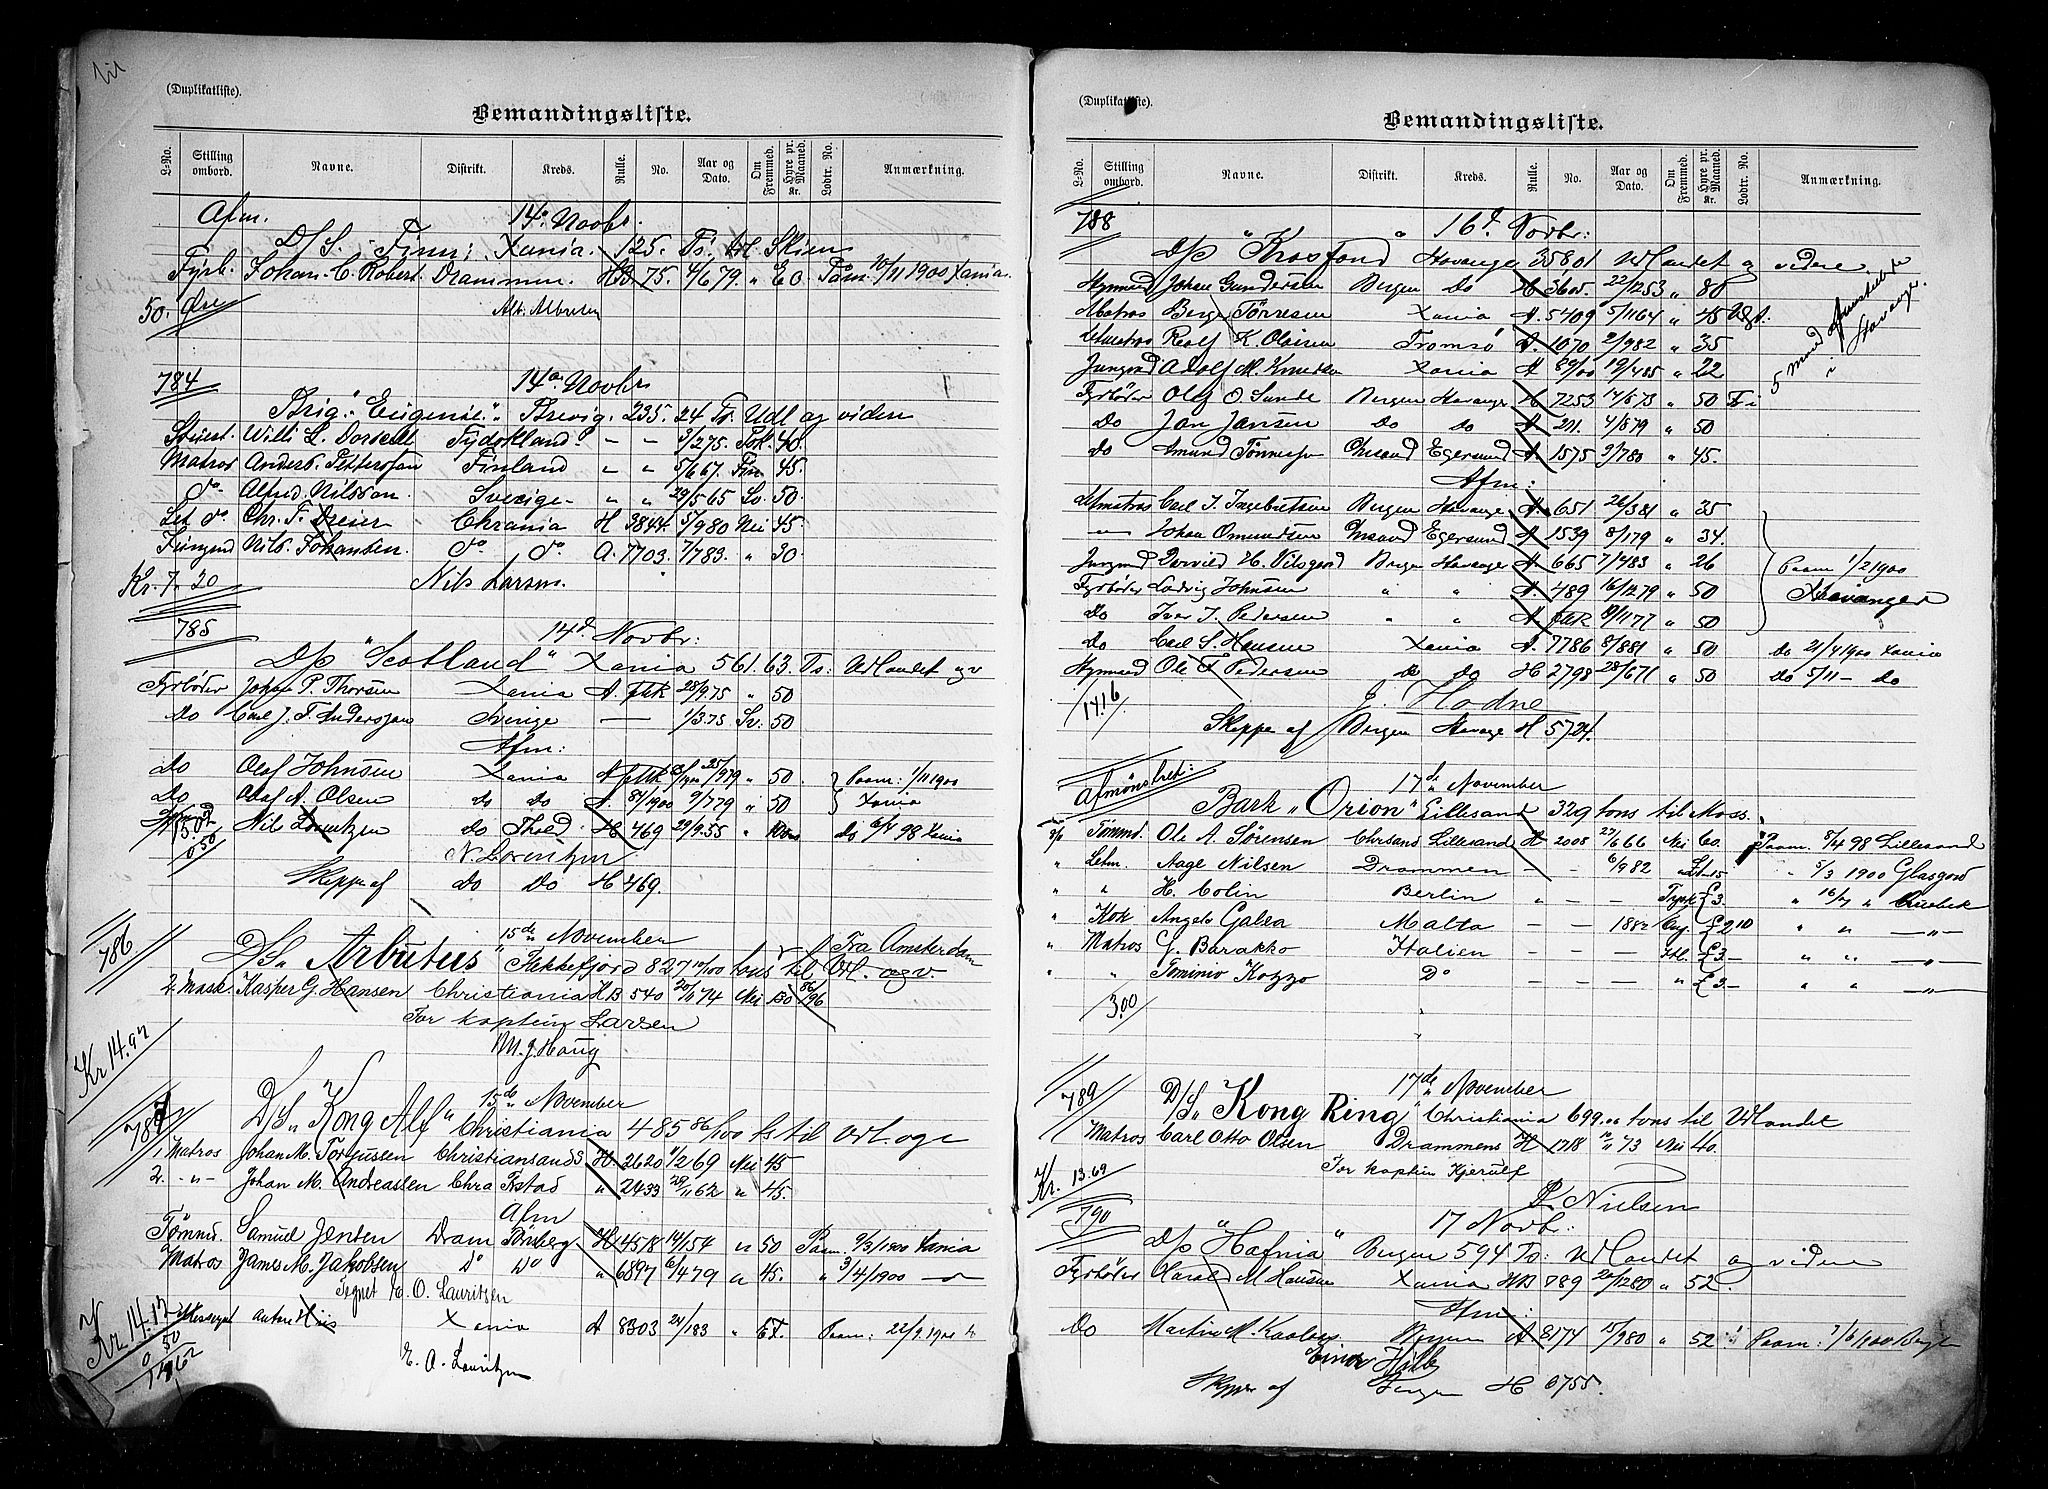 (Duplikatliste).
Bemandingsliste.
L-No. Stilling ombord. Navne. Distrikt. Kreds. Rulle. No. Aar og Dato. Om Fremmed. Hyre pr. Maaned. Kr. Lodtr. No. Anmærkning.
Afm. 14de Novbr.
D/S. Finn; Xania. 125. Ts. til Skien
Fyrb. Johan C. Robert. Drammen. HB 75. 4/6 79. " 50 Paam. 11 1900 Xania.
50. Øre
784 14de Novbr
Brig. "Eugenie." Brevig. 235. 24 Ts. Udl og videre
Stuert. Willi L. Tydskland. - - 3/2 75. 40.
Matros Anders. Pettersson Finland " " 5/6 67. Fin. 45.
do. Alfred Nilsson. Sverige - " " 29/5 65 Sv. 50.
Let do Chr. F. Dreier Chrania H 3844. 5/9 80 Nei 45.
Jungmd Nils. Johansen. do. do. A. 7703. 7/7 83. " 30
Kr. 7. 20 Nils Larsen.
785 14d. Novbr:
D/p "Scotland" Xania 561.63. Ts: Udlandet og v
Fyrbøder Johan P. Thorsen Xania A. 28/9 75 " 50
do Carl J. F. Andersson Sverige — 1/3 75 Sv: 50
Afm:
do Olaf Johnsen Xania A 25/9 79 " 50. Paam: 1/11 1900
do Olaf A. Olsen do do A. 84/1900 9/7 79 " 50 Xania
Nils Lorentzen do H 469 29/9.55 " do 6/4 98 Xania
0.50 N. Lorentzen
Skipper af do do H 469.
786 15de November Fra Amsterdam
D/S "Arbutus" Sandefjord 827 10/100 tons til Udl. og v.
2 Mask. Kasper G. Hansen Christiania HB 540 74 Nei 130 86/96
For kaptein Larsen
M. J. Haug
Kr 14.92
787 15de November
D/S "Kong Alf" Christiania 485 86/100 ts til Udl. og v
1 Matros Johan M. Torgussen Christiansands H 2620 1/2 69 Nei 45
2. -"- Johan M. Andreassen Chra H 2433 29/11 62 " 45.
Afm
Tømmd. Samuel Jensen Dram Tönsberg H 4518 14/1 54 " 50 Paam. 9/3 1900 Xania
Matros James M. Jakobsen Do Do " 6897 6/4 79 " 45. " 3/4/1900 — " —
Tegnet H. O. Lauritzen
Kr. 14.12 Xania A 8303 24/1 83 " 15. Paam: 22/9 1900
0 50
14 62
(Duplikatliste).
Bemandingsliste.
L-No. Stilling ombord. Navne. Distrikt. Kreds. Rulle. No. Aar og Dato. Om Fremmed. Hyre pr. Maaned. Kr. Lodtr. No. Anmærkning.
788 16d. Novbr:
D/p "Krosfond" Stavanger 358.01 Udlandet og videre
Styrmand Johan Gundersen Bergen do H 3605. 22/12 53 " 80
Matros Berge Törresen Xania A. 5409 5/11 64 " 45
Letmatros Rolf K. Olsen Tromsö A. 1070 2/9 82 " 35
Jungmd Adolf M. Knudsen Xania A 89/00 19/4 85 " 22
Fyrbøder Olaf O. Sunde Bergen Stavanger H 7253 14/5 73 " 50
Do Jan Jansen Do do A 211. 4/5 79 " 50
do Amund Tönnessen Chrsand Egersund A. 1575 2/7 80 " 45.
5 mand paamönstrede i Stavanger.
Afm:
Letmatros Carl I. Ingebretsen Bergen Stavanger A. 651 26/3 81 " 35
— " — Johan Omundsen Chrsand Egersund A 1539 8/1 79 " 34.
Jungmd H. Bergen Stavanger A. 665 7/4 83 " 26 Paam 1/2 1900
Fyrbøder Ludvig Johnsen " " A. 489 16/12 79 " 50 Stavanger
Do Iver I. Pedersen " " A. 9/11 77 " 50
Do Carl S. Hansen Xania A. 7786 8/8 81 " 50 Do 21/4 1900 Xania
Styrmand Ole A Pedersen do do H 2798 28/6 71 " 50 Do 5/11 — do
14.16 J. Hodne
Skipper af Bergen Stavange H 5724.
Afmönstret: 17de November
Bark "Orion" Lillesand 329 tons til Moss.
Tömmd. Ole A. Sørensen Chrsand Lillesand H 2008 23/6 66 Nei 60. Paam. 8/4 98 Lillesand
" Letm. Aage Nilsen Drammen — — 6/9 82 15 " 5/3 1900 Glasgow
" " H. Colin Berlin " — — Tysk £3. " 16/7 "
" Kok Angelo Galea Malta — — 1882 Eng. £2 10 " " — " —
" Matros G. Barakko Italien — — — Itl. £3 — " " — " —
" " Tominio Kozzo Do — — — " £3 — " " — " —
3.00
789 17de November
D/S "Kong Ring" Christiania 699.06 tons til Udlandet
Matros Carl Otto Olsen Drammens H 1718 73 Nei 40.
For kaptein Kjerulf
Kr. 13.69
P. Nielsen
790 17 Novbr:
D/p "Hafnia" Bergen 594 Ts: Udlandet og videre
Fyrbøder Harald M. Hansen Xania HB 789 20/12 80 " 52.
Afm:
Do Martin M. Bergen A 8174 15/9 80 " 52 Paam: 7/6 1900
Skipper af Bergen H 6755.